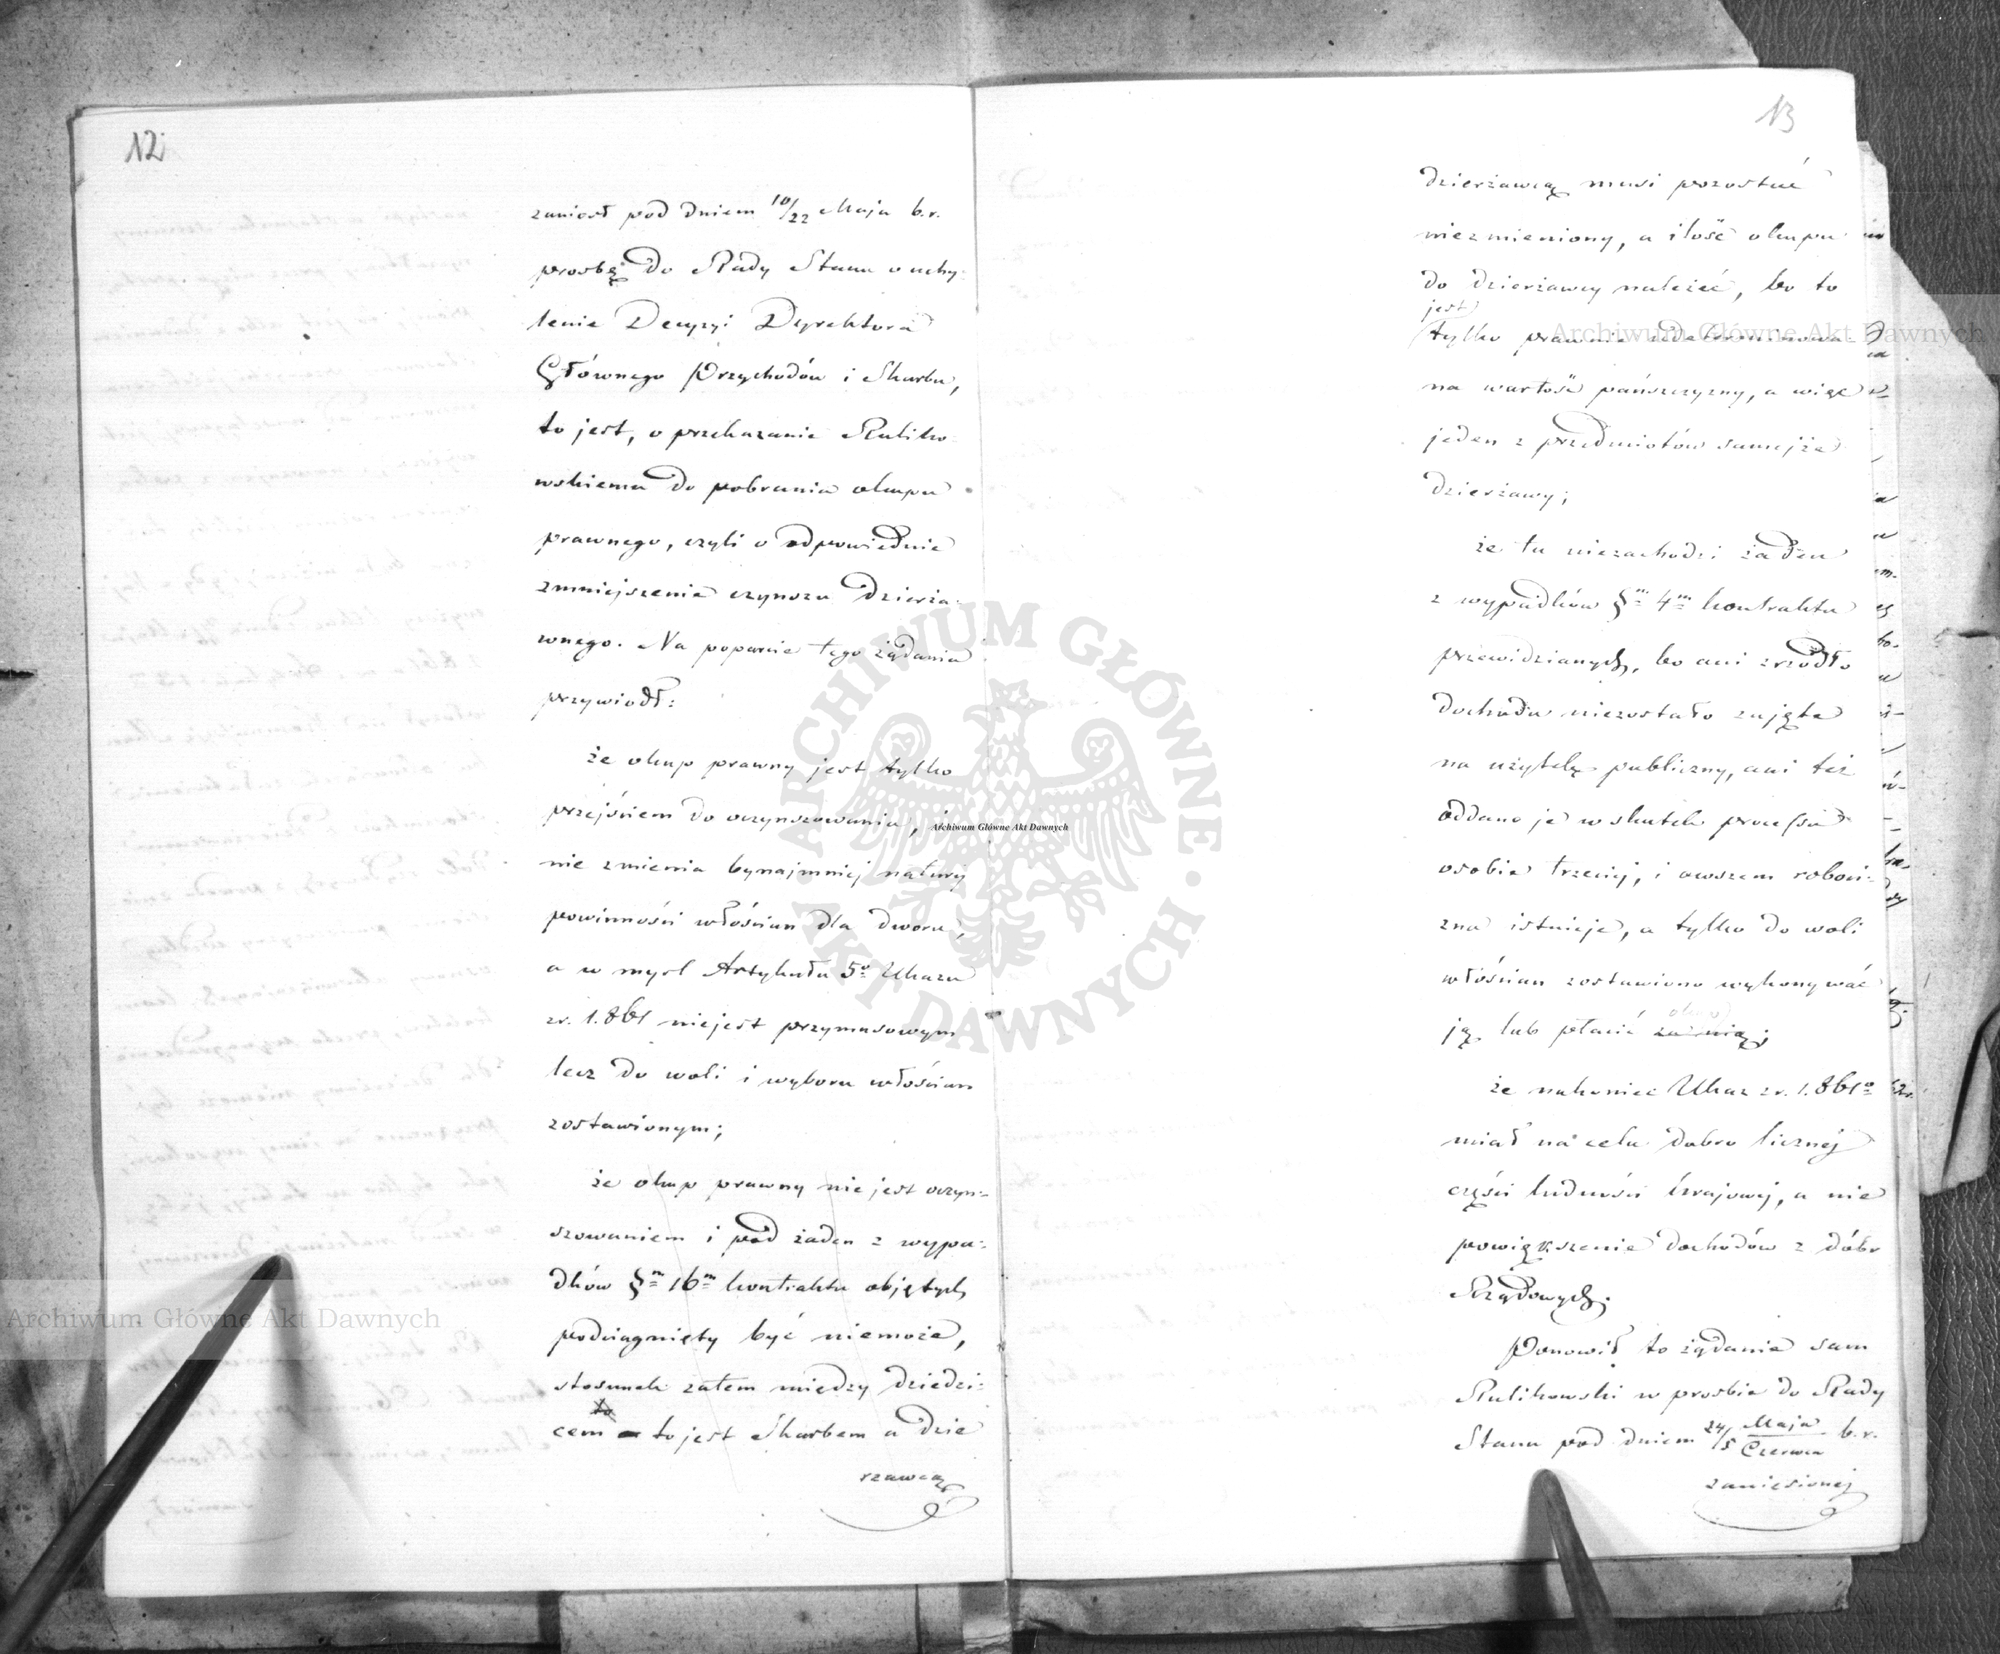 12
zaniosł pod dniem 10/22 Maja b.r.
prosbę do Rady Stanu o uchy-
lenie Decyzyi Dyrektora
Głównego Przychodów i Skarbu,
to jest, o przekazanie Kuliko-
wskiemu do pobrania okupu
prawnego, czyli o odpowiednie
zmniejszenie czynszu dzierża-
wnego. Na poparcie tego żądania
przywiodł:
że okup prawny jest tylko
przejściem do oczynszowania,
nie zmienia bynajmniej natury
powinności włościan dla dworu,
a w mysl Artykułu 5º Ukazu
z r. 1861 niejest przymusowym
lecz do woli i wyboru włościan
zostawionym;
że okup prawny nie jest oczyn-
szowaniem i pod żaden z wypa-
dków §m 16m kontraktu objętych
podciągnięty być niemoże,
stosunek zatem między dziedzi-
cem to jest Skarbem a dzie
rzawcą
13
dzierżawcą musi pozostać
niezmieniony, a ilość okupu
do dzierżawcy należeć, bo to
jest
tylko prawnie zdetermonowa-
na wartość pańszczyzny, a więc
jeden z przedmiotów samejże
dzierżawy;
że tu niezachodzi żaden
z wypadków §m 4m kontraktu
przewidzianych, bo ani zrzodło
dochodu niezostało zajęte
na użytek publiczny, ani też
oddano je w skutek processu
osobie trzeciej, i owszem roboci-
zna istnieje, a tylko do woli
włościan zostawiono wykonywać
ją lub płacić okup za nią;
że nakoniec Ukaz z r. 1861º
miał na celu dobro licznej
części ludności krajowej, a nie
powiększenie dochodów z dóbr
Rządowych.
Ponowił to żądanie sam
Kulikowski w prosbie do Rady
Stanu pod dniem 24/5 Maja/Czerwca b.r.
zaniesionej
Archiwum Główne Akt Dawnych
Archiwum Główne Akt Dawnych
Archiwum Główne Akt Dawnych
ARCHIWUM GŁÓWNE · AKT DAWNYCH ·